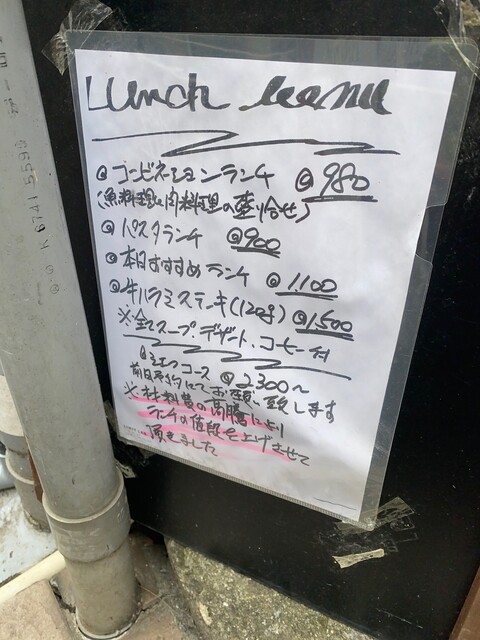 Lunch menu
@コンビネーションランチ @980
(魚料理と肉料理の盛り合せ)
@パスタランチ @900
@本日おすすめランチ @1.100
@牛ハラミステーキ(120g) @1.500
※全てスープ、デザート、コーヒー付
@シェフコース @2.300〜
前日予約にてお願い致します
※材料費の高騰により
ランチの値段を上げさせて
頂きました
K 6741 5599